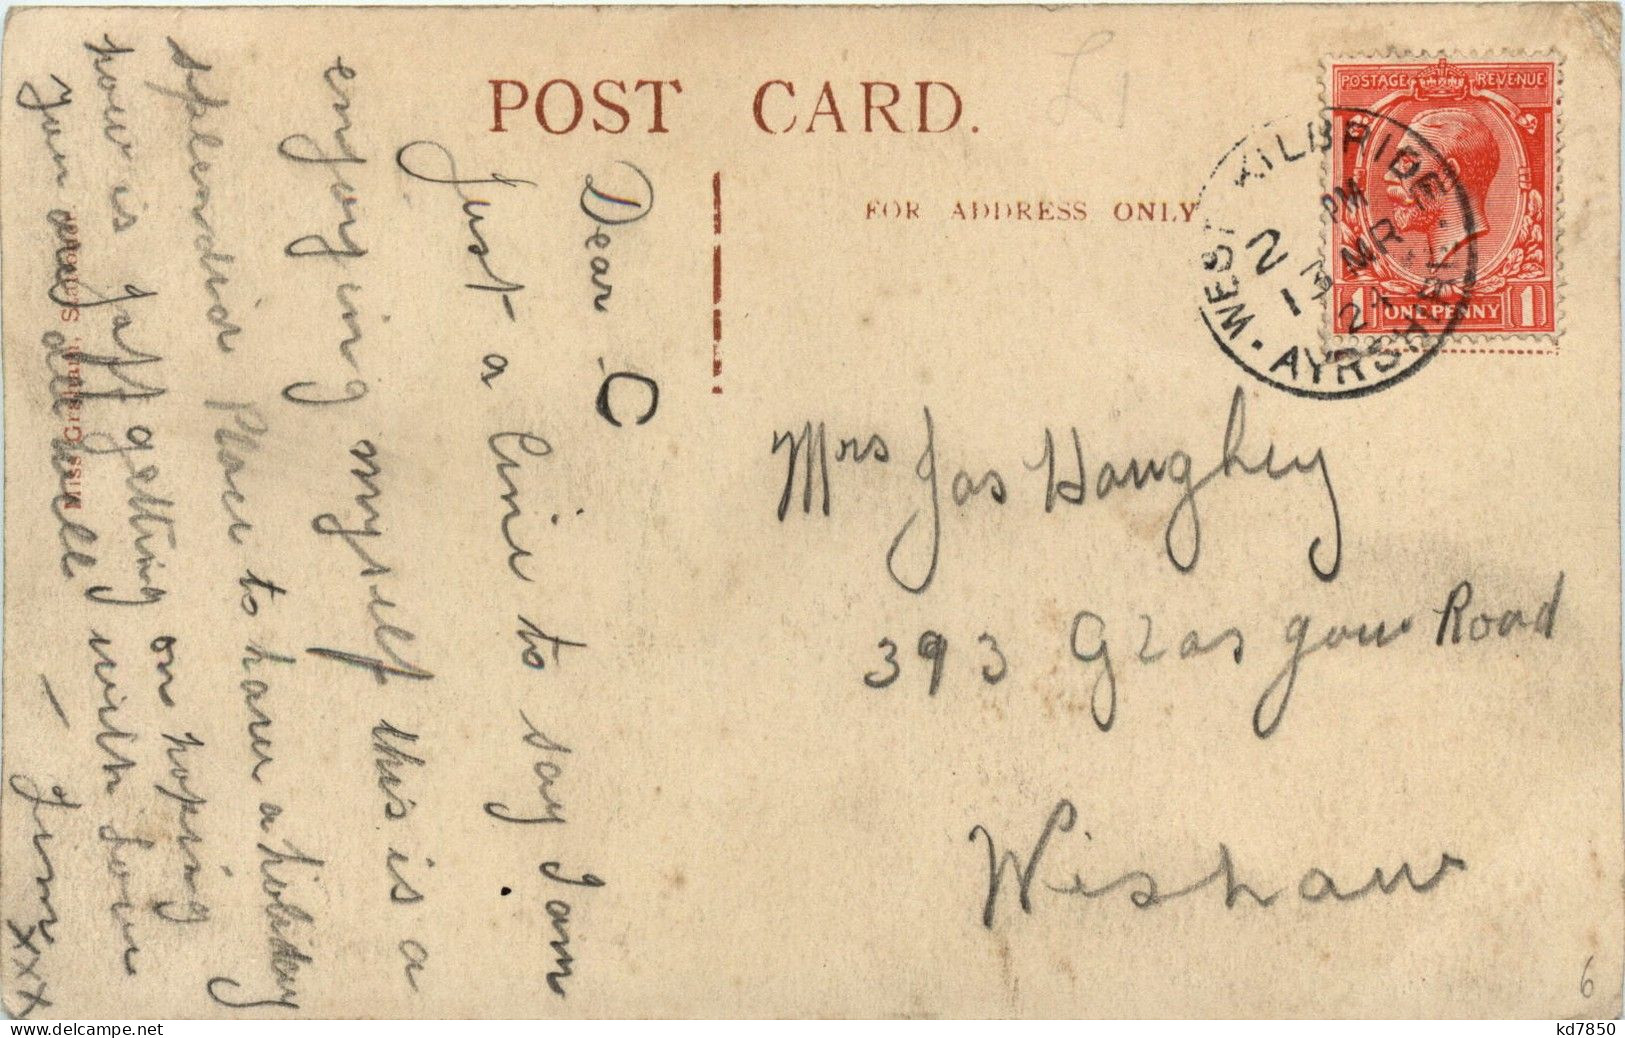 POST CARD.
FOR ADDRESS ONLY
£1
POSTAGE REVENUE
1 ONE PENNY 1
WEST KILBRIDE
2 PM
13 MR
24
AYRSHIRE
Dear C
Just a line to say I am
enjoying myself this is a
splendid Place to have a holiday
how is Jaff getting on hoping
you are all well with love
Jim
xxx
Miss Graham,
Mrs Jas Haughey
393 Glasgow Road
Wishaw
6
kd7850